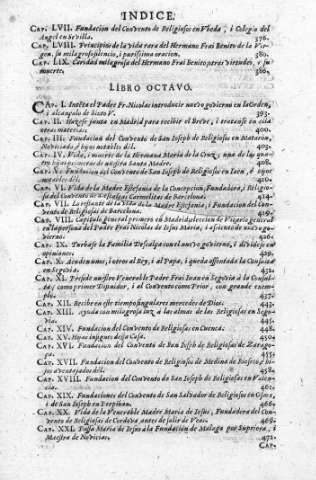 INDICE.
CAP. LVII. Fundacion del Convento de Religiosos en Vbeda, i Colegio del
Angel en Sevilla. 376.
CAP. LVIII. Principios de la vida rara del Hermano Frai Benito de la Vir-
gen, su milagroso silencio, i purissima oracion. 380.
CAP. LIX. Caridad milagrosa del Hermano Frai Benito, otras virtudes, y su
muerte. 386.
LIBRO OCTAVO.
CAP. I. Intēta el Padre Fr. Nicolas introducir nuevo govierno en la Orden,
i alcançalo de Sixto V. 393.
CAP. II. Hazese junta en Madrid para recibir el Breve, i tratanse en ella
otras materias. 400.
CAP. III. Fundacion del Convento de San Ioseph de Religiosas en
Noviciado, i hijos notables dèl. 403.
CAP. IV. Vida, i muerte de la Hermana Maria de la Cruz, una de las
hijas de nuestra Santa Madre. 408.
CAP. V. Fundacion del Convento de San Ioseph de Religiosos en
notables dèl. 412.
CAP. VI. Vida de la Madre Estefania de la Concepcion, Fundadora, i Religio-
sa del Convento de Descalças Carmelitas de Barcelona. 414.
CAP. VII. La restante de la Vida de la Madre Estefania, i Fundacion del Con-
vento de Religiosas de Barcelona.
CAP. VIII. Capitulo general primero en Madrid, eleccion de Vicario general
en la persona del Padre Frai Nicolas de Iesus Maria, i assiento de nuevo go-
vierno. 426.
CAP. IX. Turbase la Familia Descalça con el nuevo govierno, i dividese en
opiniones. 429.
CAP. X. Acuden unos, i otros al Rey, i al Papa, i queda assentada la Consulta
en Segovia. 432.
CAP. XI. Preside nuestro Venerable Padre Frai Iuan en Segovia à la Consul-
ta como primer Difinidor, i al Convento como Prior, con grande exem-
plo. 437.
CAP. XII. Recibe en este tiempo singulares mercedes de Dios. 443.
CAP. XIII. Ayuda con milagrosa luz à las almas de las Religiosas en Sego-
via. 445.
CAP. XIV. Fundacion del Convento de Religiosos en Cuenca. 448.
CAP. XV. Hijos insignes desta Casa. 450.
CAP. XVI. Fundacion del Convento de San Ioseph de Religiosas de Zarago-
ça. 455.
CAP. XVII. Fundacion del Convento de Religiosos de Medina de Rioseco, hi-
jos aventajados dèl. 458.
CAP. XVIII. Fundacion del Convento de San Ioseph de Religiosas en Valen-
cia.
CAP. XIX. Fundaciones del Convento de San Salvador de Religiosos en
i de San Ioseph en Perpiñan. 466.
CAP. XX. Vida de la Venerable Madre Maria de Iesus, Fundadora del Con-
vento de Religiosas de Cordova antes de salir de Veas.
CAP. XXI. Passa Maria de Iesus à la Fundacion de Malaga por Supriora, i
Maestra de Novicias. 472.
CAP.